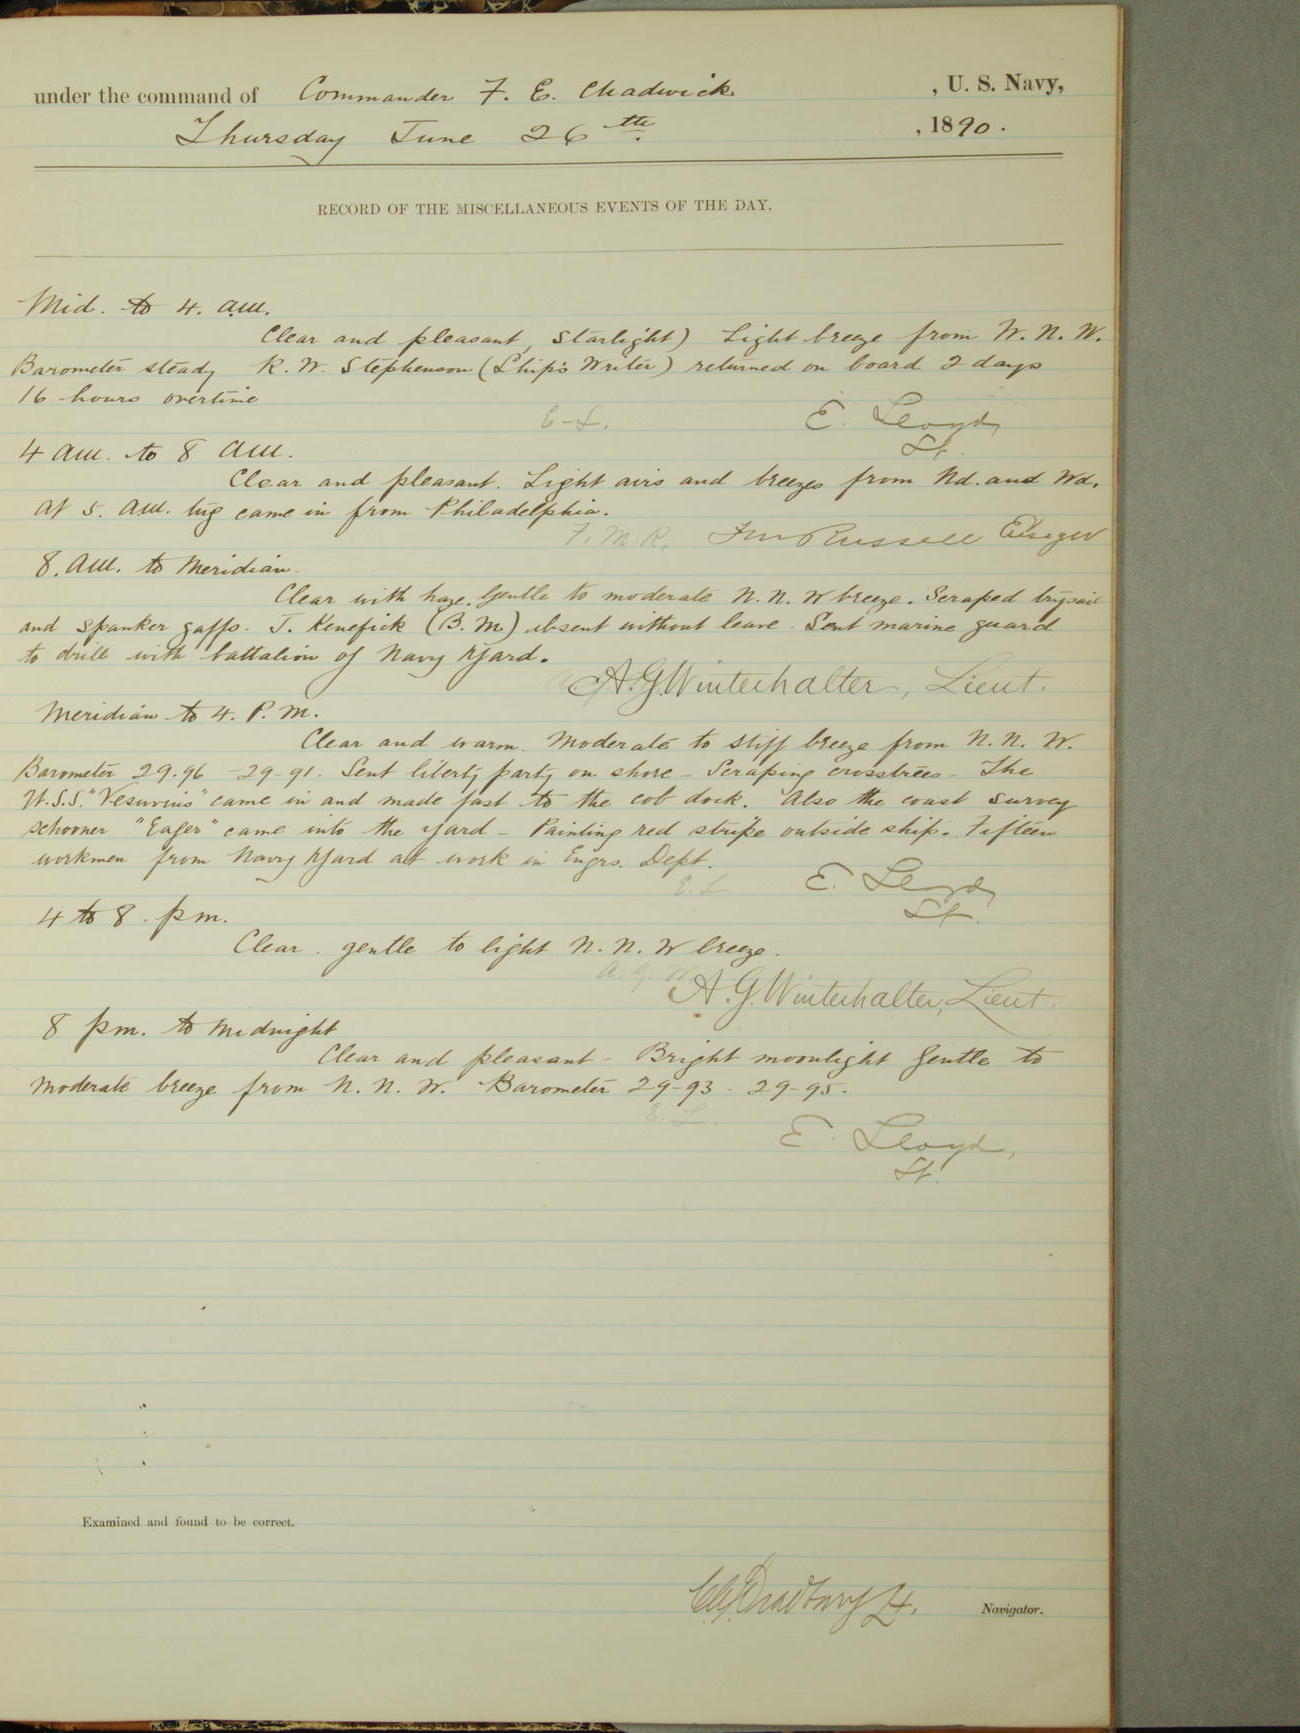 under the command of Commander F. E. Chadwick, U. S. Navy,
Thursday June 26th, 1890.
RECORD OF THE MISCELLANEOUS EVENTS OF THE DAY.
Mid. to 4. a.m.
Clear and pleasant, starlight) Light breeze from W. N. W.
Barometer steady R. W. Stephenson (Ship's Writer) returned on board 2 days
16 hours overtime
E-L. E. Lloyd,
Lt.
4 am. to 8 am.
Clear and pleasant. Light airs and breezes from Nd. and Wd.
At 5. am. tug came in from Philadelphia.
F. M. R. F M Russell Ensign
8. am. to Meridian.
Clear with haze. Gentle to moderate N. N. W breeze. Scraped trysail
and spanker gaffs. J. Kenefick (B. M.) absent without leave. Sent marine guard
to drill with battalion of Navy Yard.
A. G. Winterhalter, Lieut.
Meridian to 4. P. M.
Clear and warm. Moderate to stiff breeze from N. N. W.
Barometer 29.96 - 29-91. Sent liberty party on shore - Scraping crosstrees - The
U.S.S. "Vesuvius" came in and made fast to the cob dock. Also the coast survey
schooner "Eager" came into the yard - Painting red stripe outside ship. Fifteen
workmen from Navy Yard at work in Engrs. Dept.
E. L E. Lloyd,
Lt.
4 to 8. pm.
Clear. gentle to light N. N. W breeze.
A. G. W
A. G. Winterhalter, Lieut.
8 pm. to Midnight
Clear and pleasant - Bright moonlight Gentle to
moderate breeze from N. N. W. Barometer 29-93 - 29-95.
E. L.
E. Lloyd,
Lt.
Examined and found to be correct.
Bradbury Lt. Navigator.